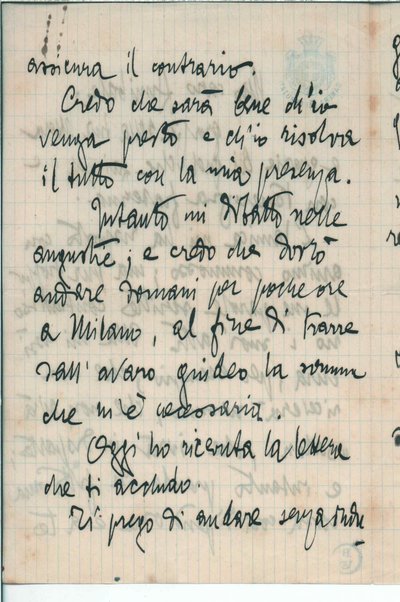 assicura il contrario.
Credo che sarà bene ch'io
venga presto e ch'io risolva
il tutto con la mia presenza.
Intanto mi dibatto nelle
angustie; e credo che dovrò
andare domani per poche ore
a Milano, al fine di trarre
dall'avaro giudeo la somma
che m'è necessaria.
Oggi ho ricevuta la lettera
che ti accludo.
Ti prego di andare senza indu